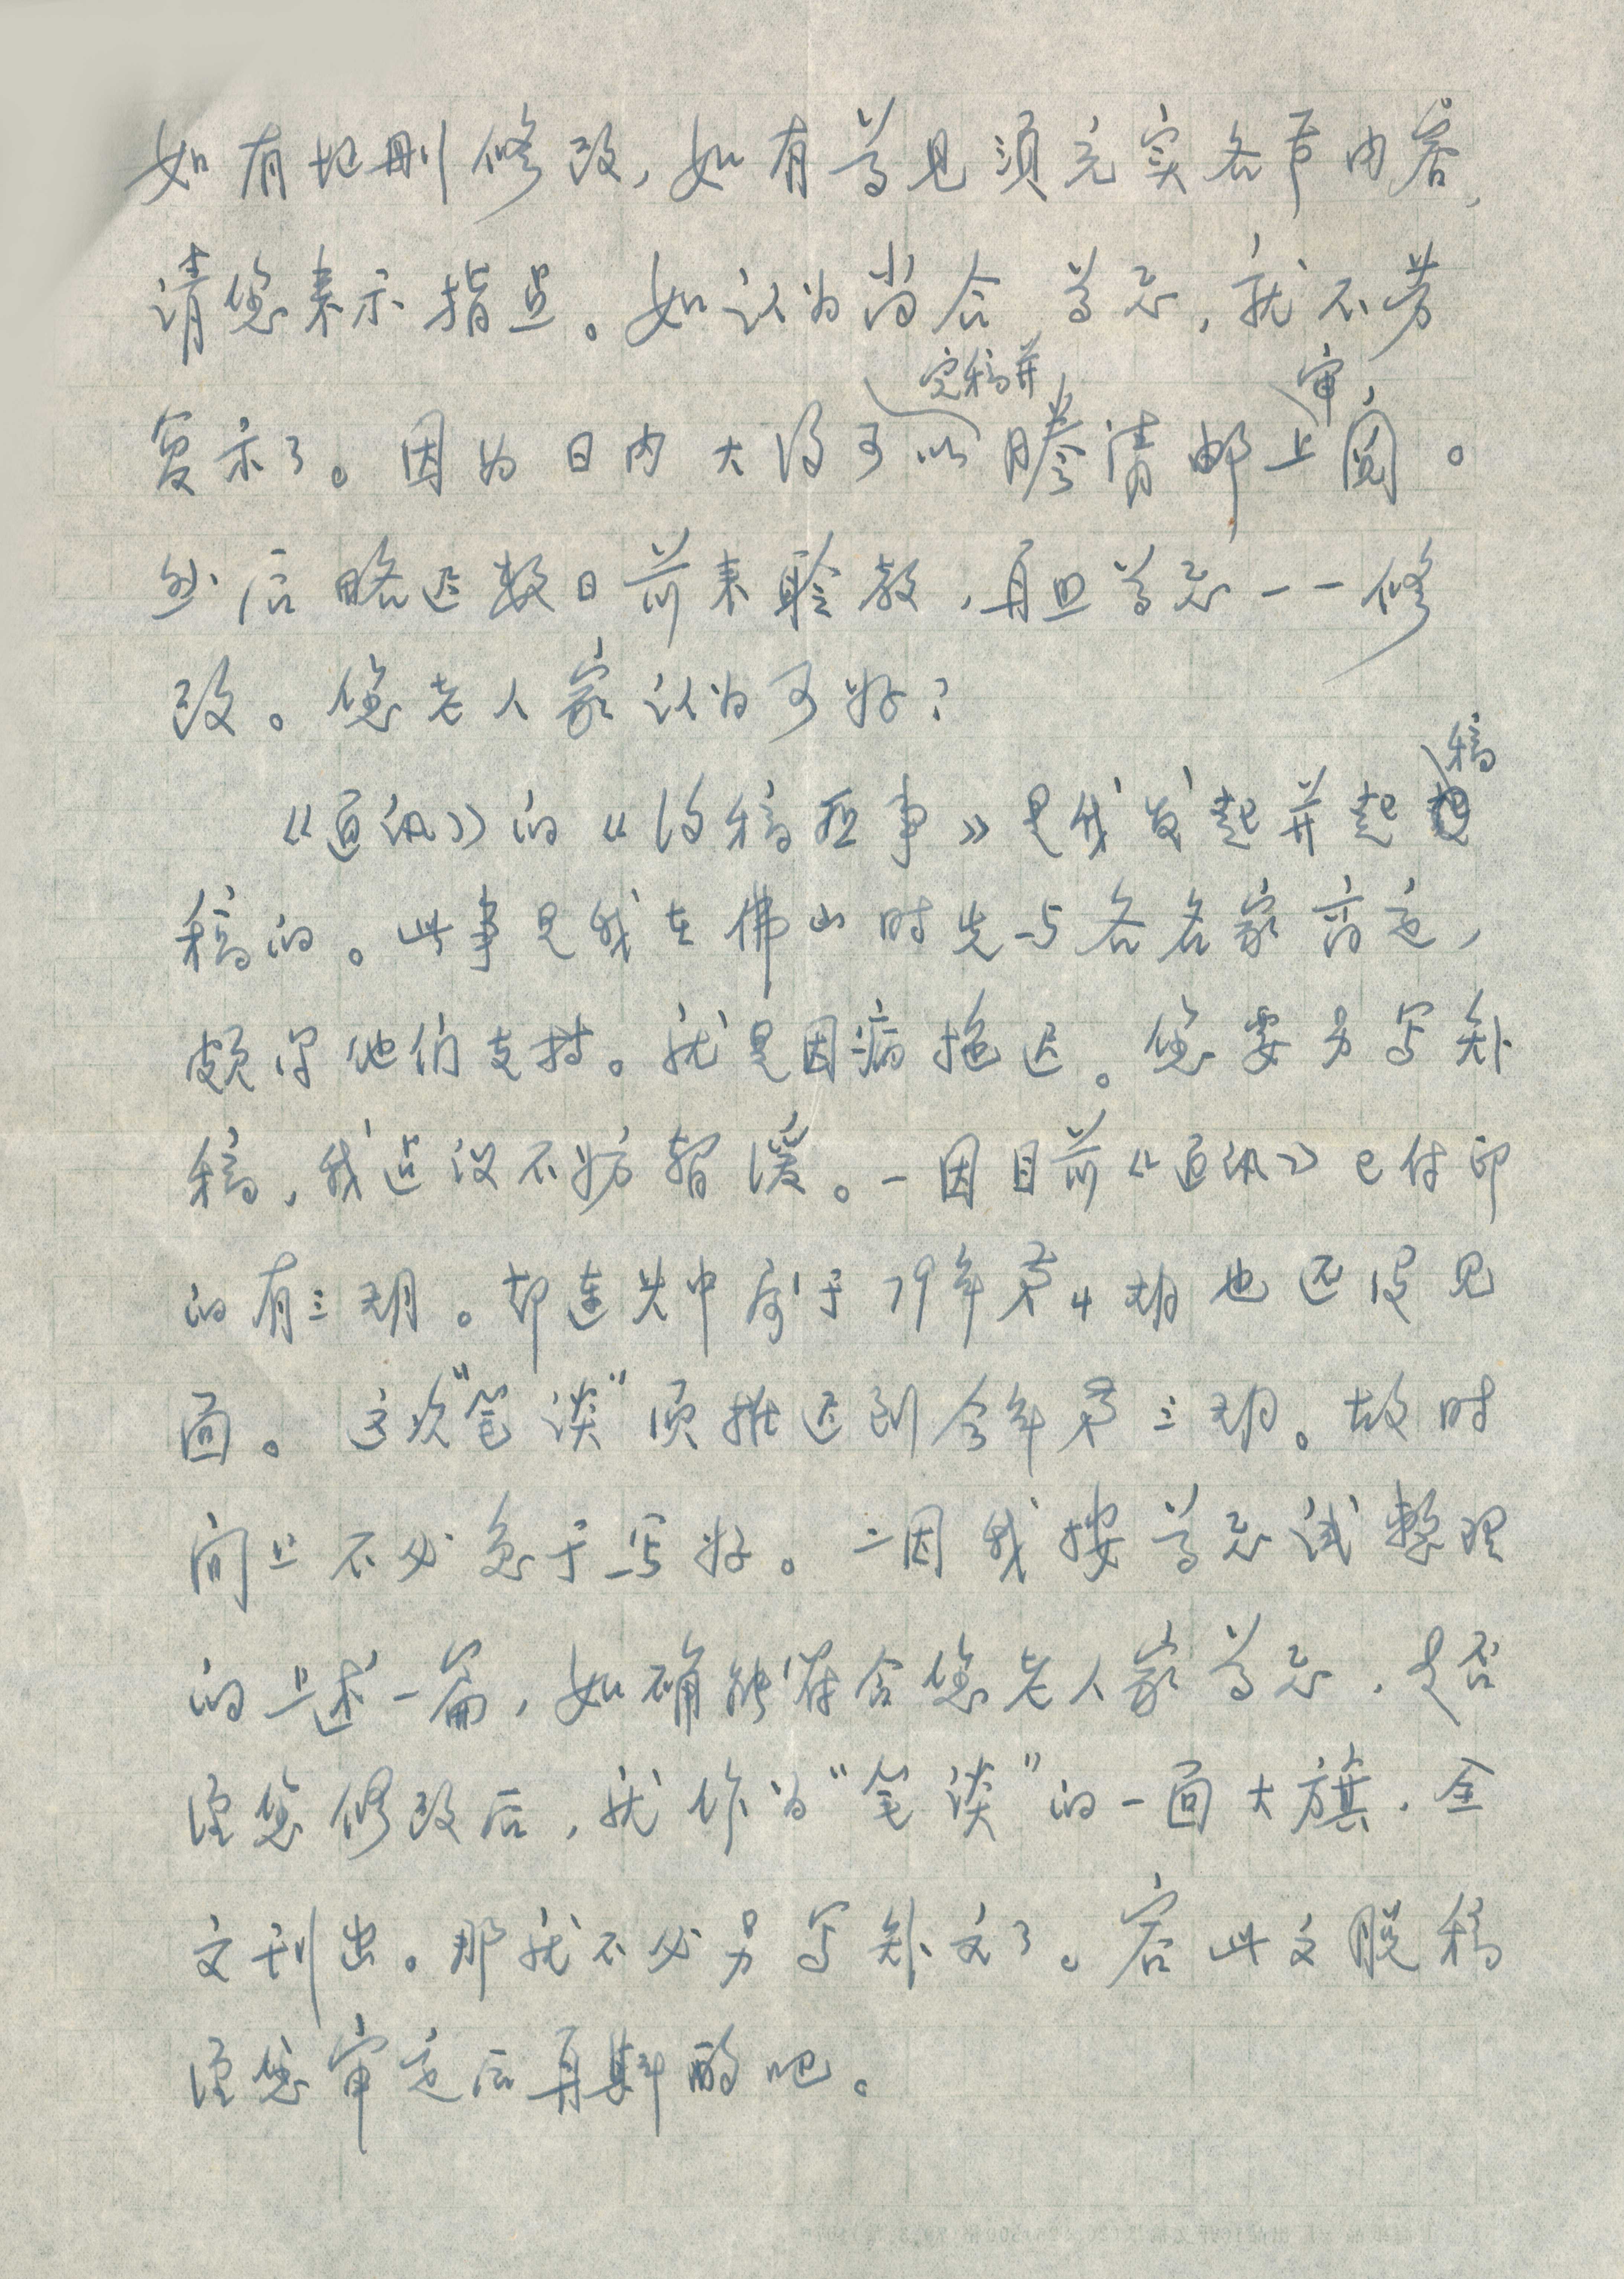 如有增删修改，如有尊见须充实各节内容，
请您来示指点。如认为尚合 尊意，就不劳
复示了。因为日内大约可以定稿并誊清邮上审阅。
然后略迟数日前来聆教，再照尊意一一修
改。您老人家认为可好？
《通讯》的《约稿启事》是我发起并起稿
稿的。此事是我在佛山时先与各名家商定，
颇得他们支持。就是因病拖迟。您要另写补
稿，我建议不妨暂缓。一因目前《通讯》已付印
的有三期。却连其中属于79年第4期也还没见
面。这次“笔谈”须推迟到今年第三期。故时
间上不必急于写好。二因我按尊意试整理
的上述一篇，如确能符合您老人家尊意，是否
经您修改后，就作为“笔谈”的一面大旗，全
文刊出。那就不必另写补文了。容此文脱稿
经您审定后再斟酌吧。